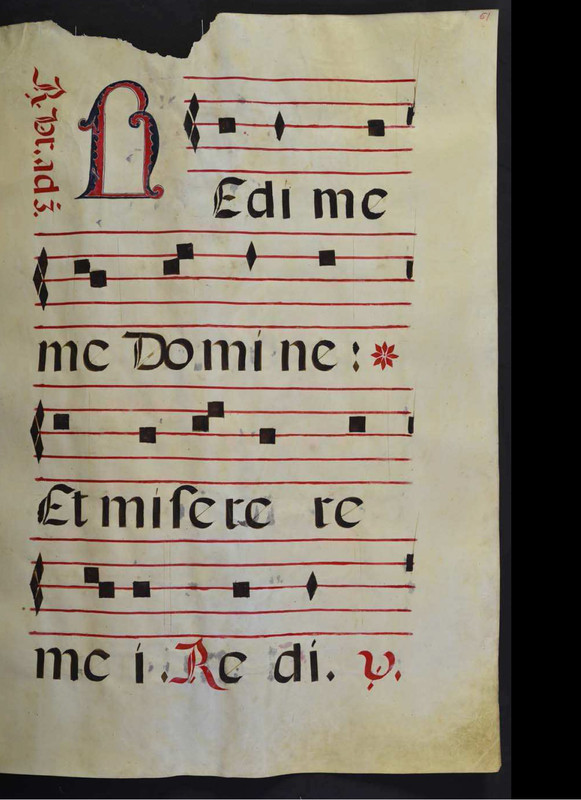 61
℟. br. ad 3.
REdi me
me Domi ne : *
Et misere re
me i. Re di. ℣.